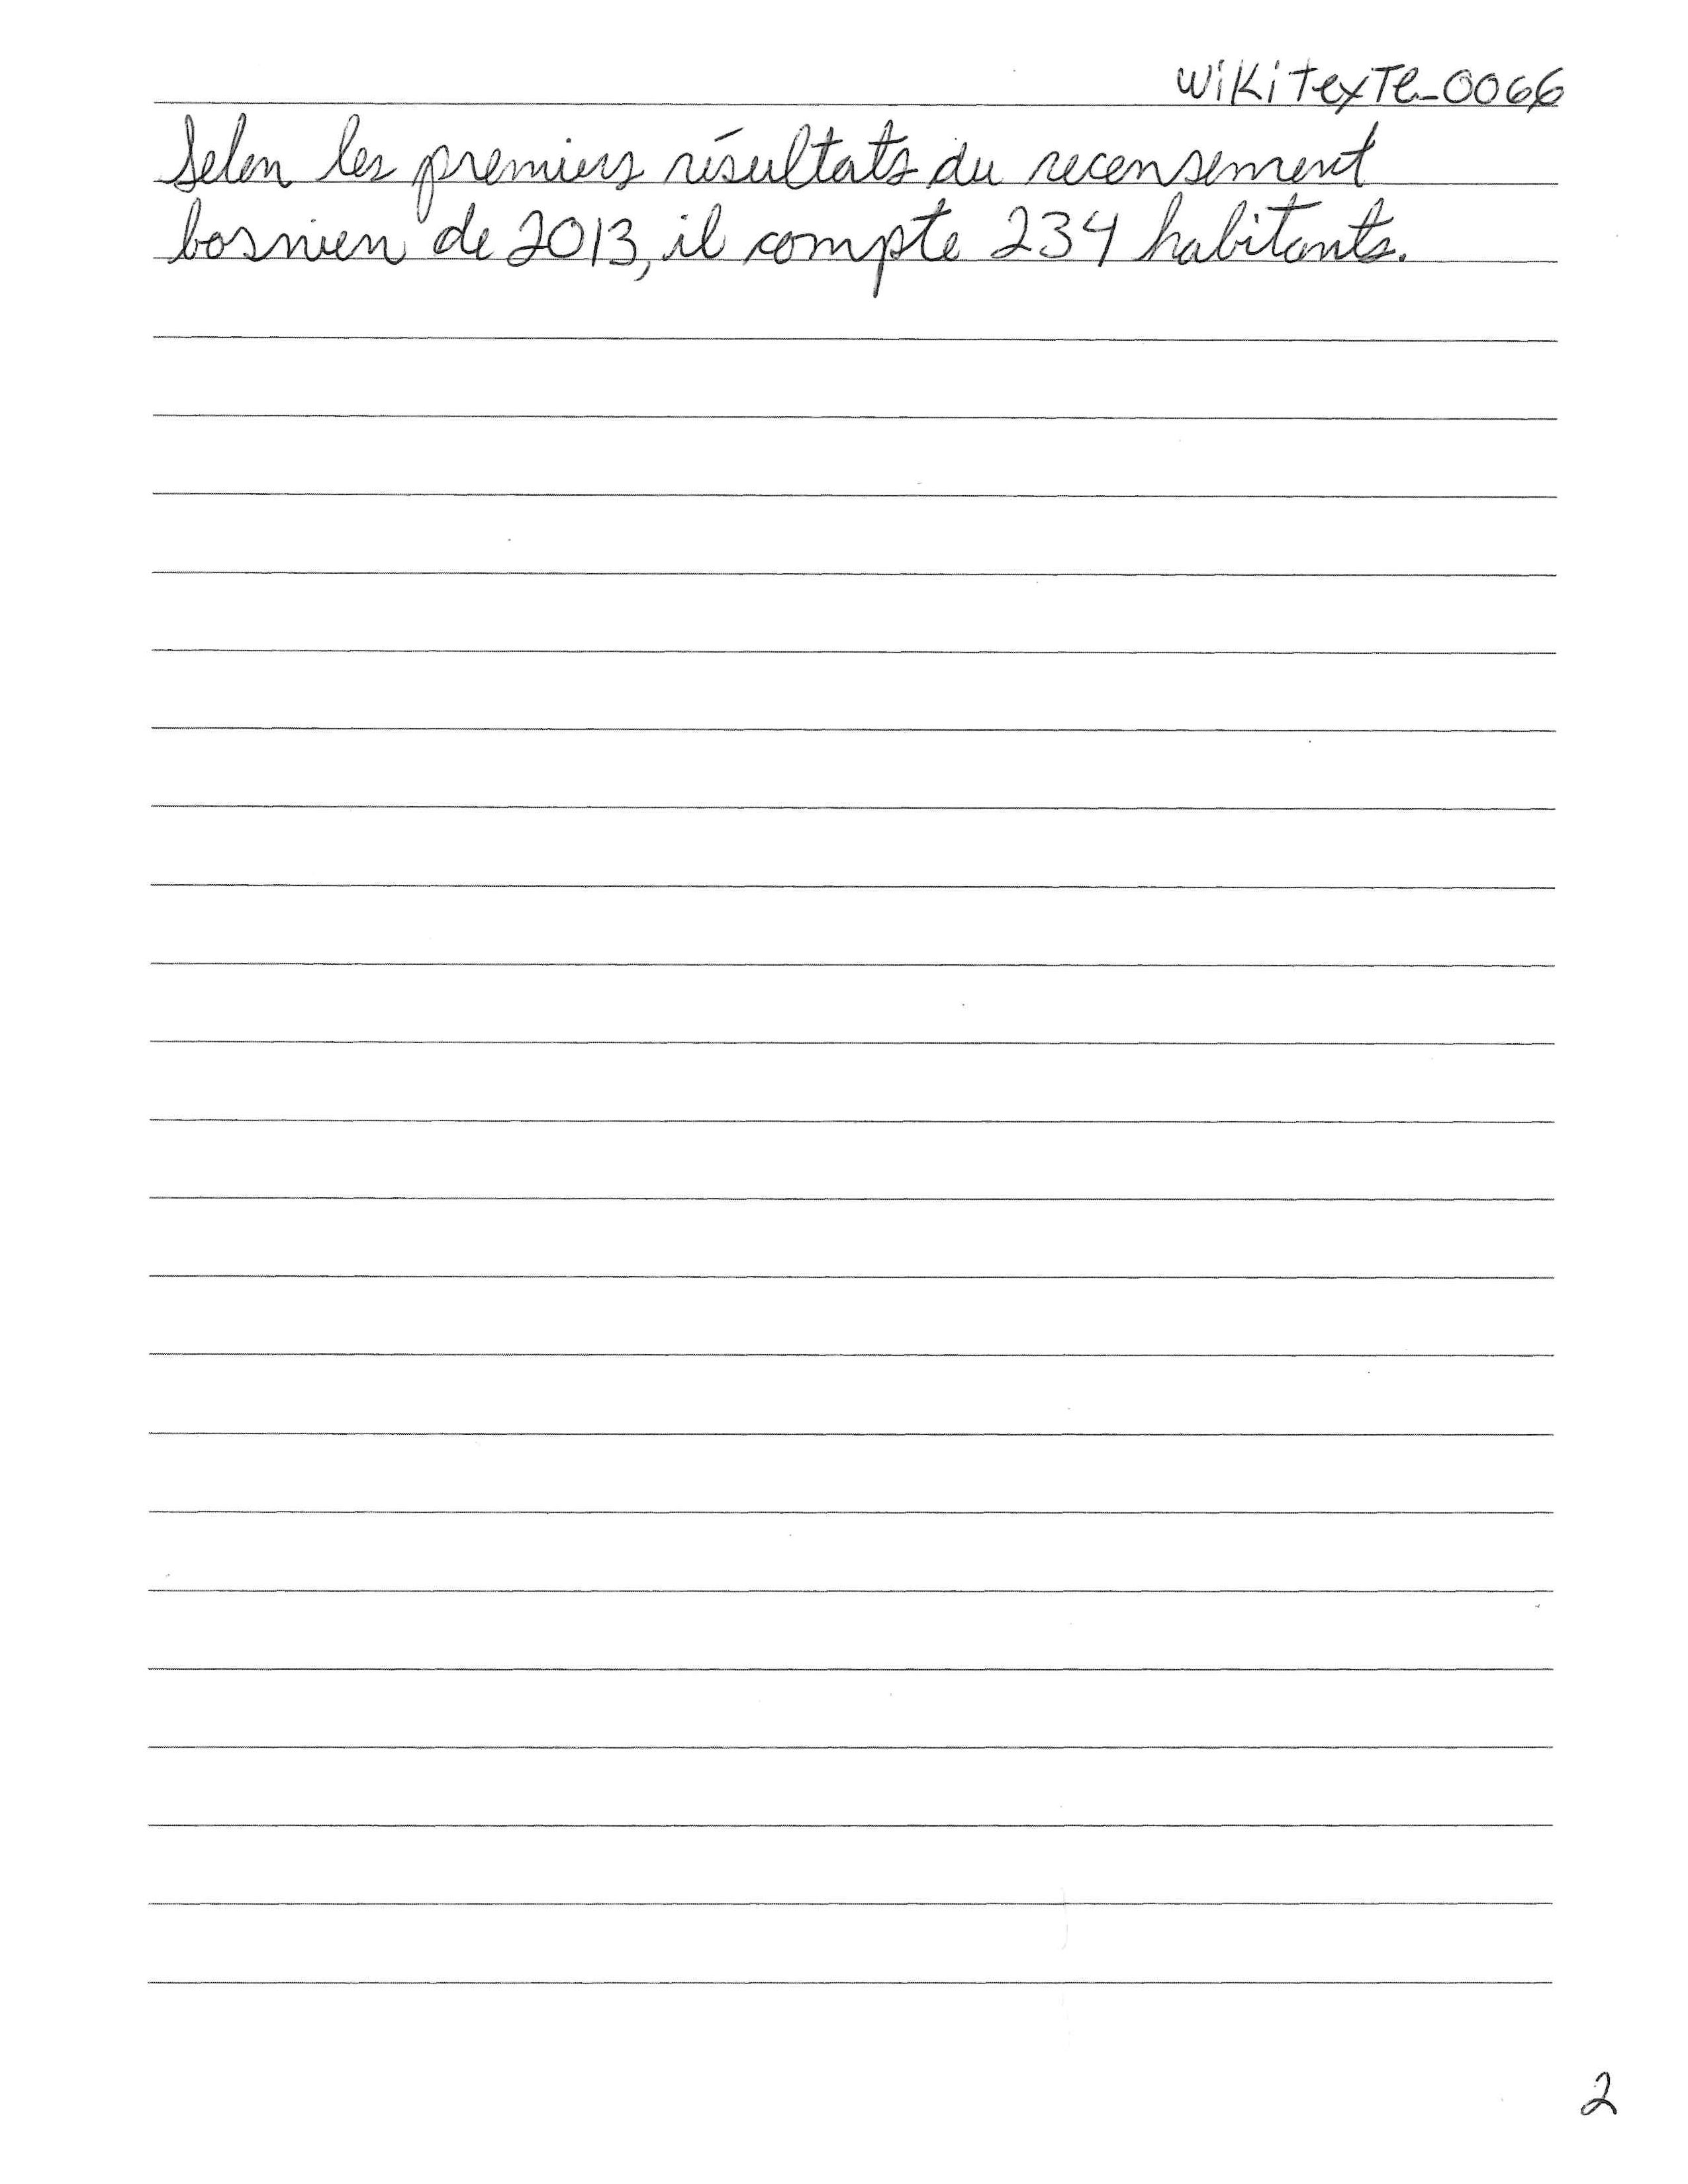 WiKiTexTe_0066
Selon les premiers résultats du recensement
bosnien de 2013, il compte 234 habitants.
2